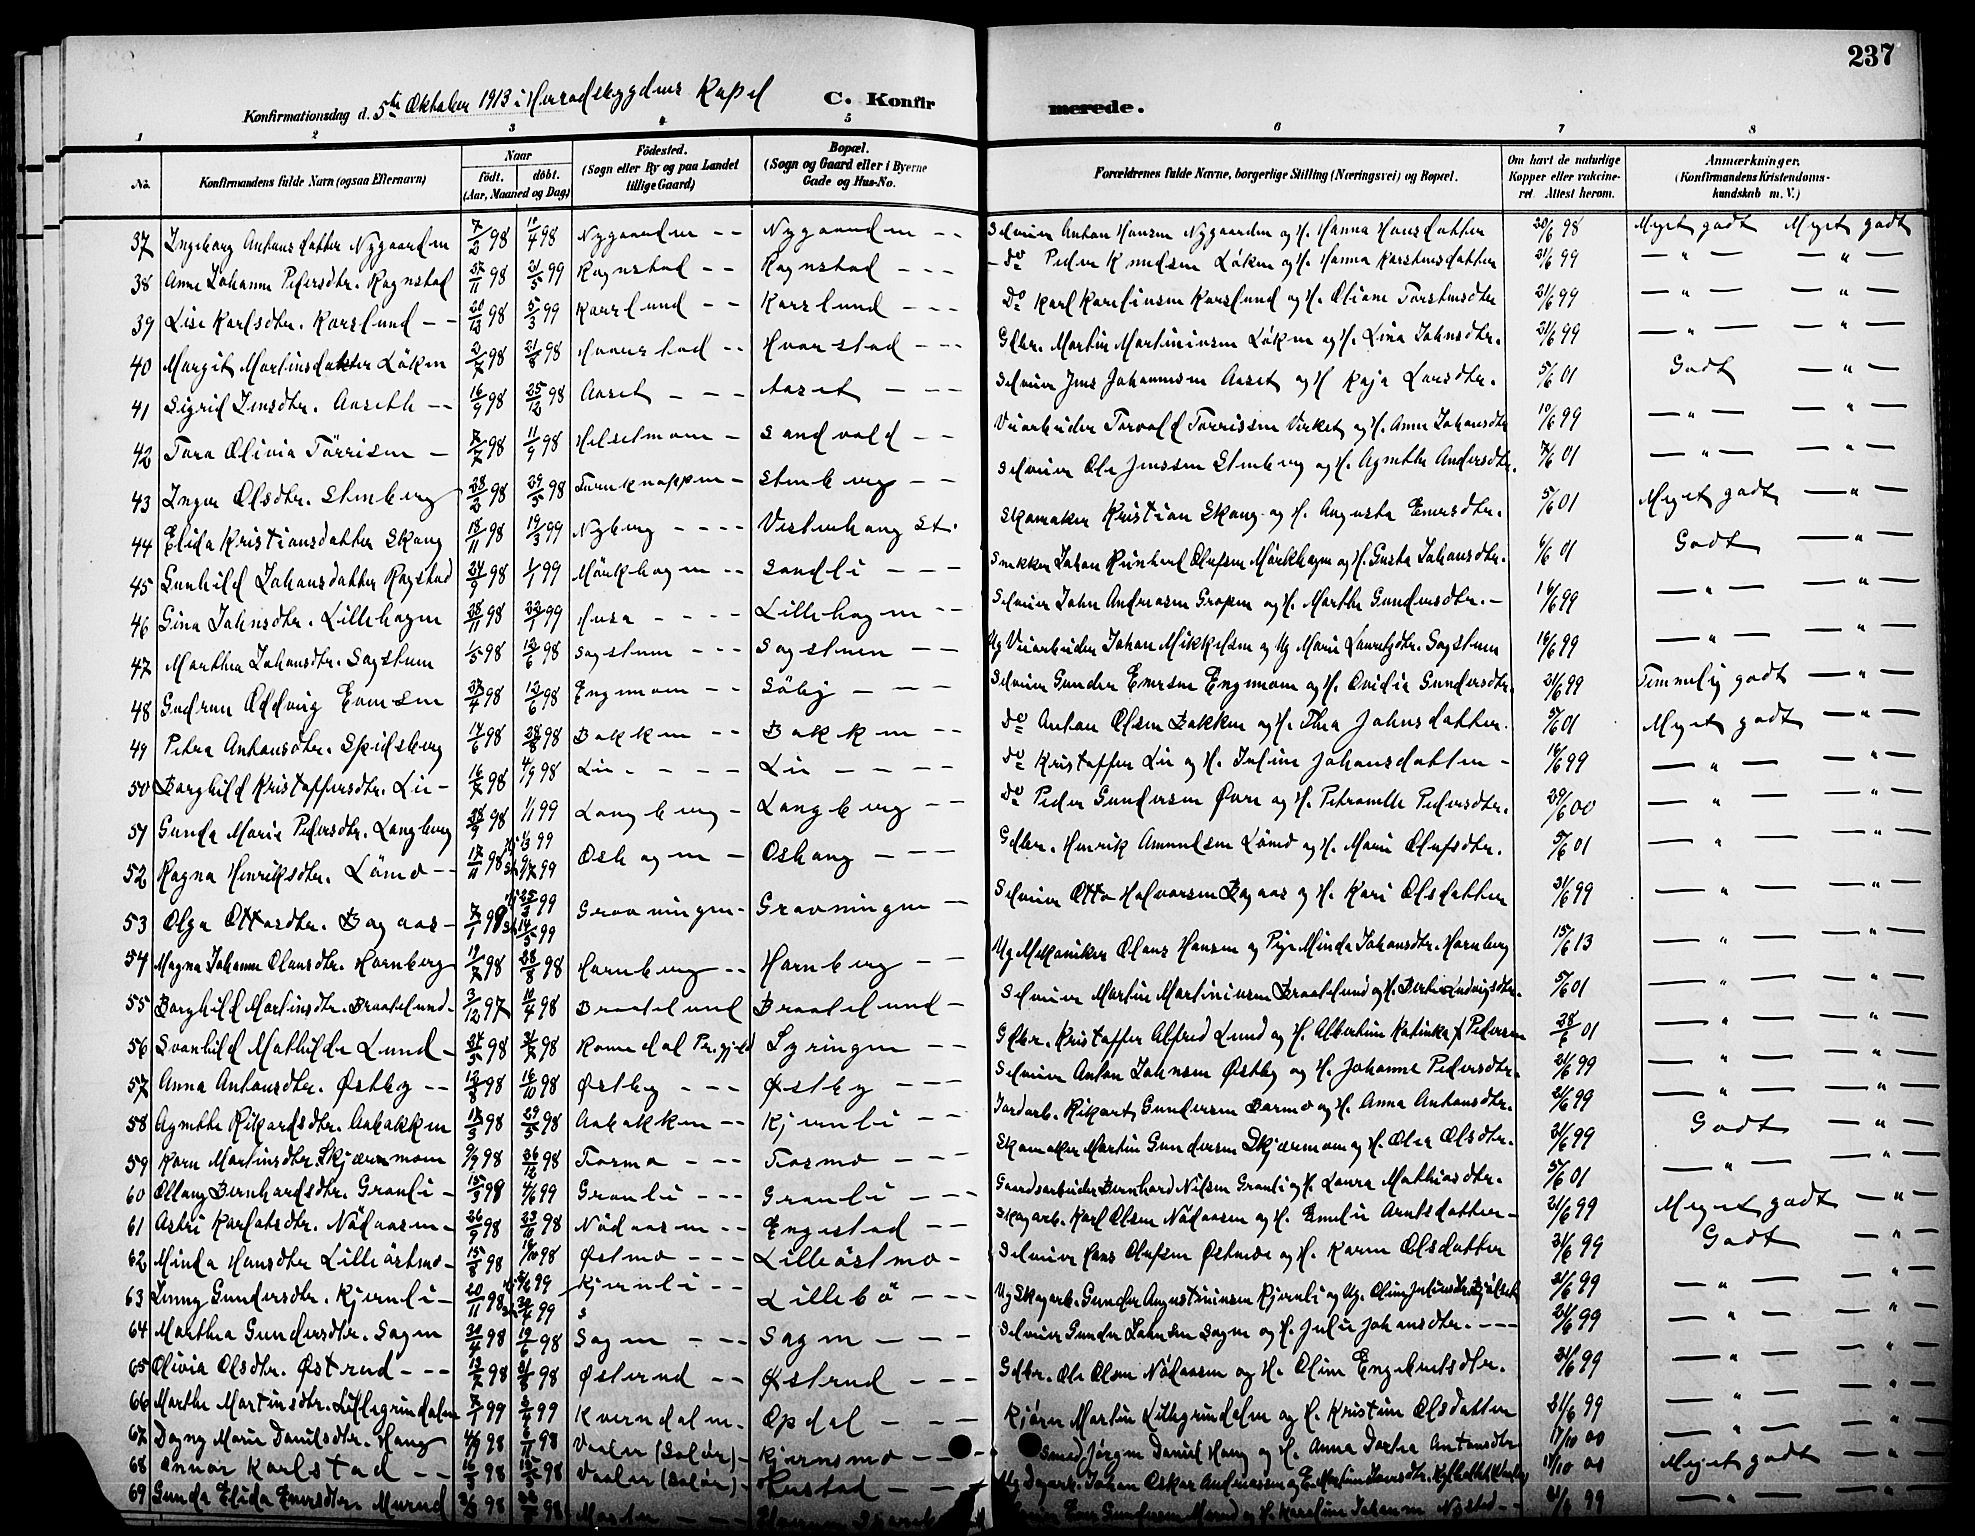 237
Konfirmationsdag d. 5te Oktober 1913 i Heradsbygdens Kapel C. Konfirmerede.
1 2 3 4 5 6 7 8
No. Konfirmandens fulde Navn (ogsaa Efternavn) Naar födt. döbt. (Aar, Maaned og Dag) Födested. (Sogn eller By og paa Landet tillige Gaard) Bopæl. (Sogn og Gaard eller i Byerne Gade og Hus-No. Forældrenes fulde Navne, borgerlige Stilling (Næringsvei) og Bopæl. Om havt de naturlige Kopper eller vakcineret. Attest herom. Anmærkninger. (Konfirmandens Kristendomskundskab m. V.)
37 Ingeborg Antonsdatter Nygaarden 7/2 98 10/4 98 Nygaarden -- Nygaarden -- Selveier Anton Hansen Nygaarden og H. Hanna Hansdatter 20/6 98 Meget godt Meget godt
38 Anne Johanne Pedersdtr. Ragnstad 27/11 98 21/5 99 Ragnstad -- Ragnstad --- do Peder Knudsen Löken og H. Hanna Karstensdatter 21/6 99 — " — — " —
39 Lise Karlsdtr. Karslund -- 98 5/3 99 Karslund -- Karslund --- Do Karl Karelinsen Karslund og H. Oliane Torstensdtr 21/6 99 — " — — " —
40 Margit Martinsdatter Löken 2/7 98 21/8 98 Hvarstad -- Hvarstad --- Gbr. Martin Martininsen Löken og H. Lina Johnsdtr. 21/6 99 — " — — " —
41 Sigrid Jensdtr. Aaseth -- 16/9 98 25/12 98 Aaset --- Aaset --- Selveier Jens Johannesen Aaset og H Kaja Larsdtr. 5/6 01 Godt — " —
42 Tora Olivia Törrisen - 2/7 98 11/9 98 Helsetmoen - Sandvold -- Veiarbeider Torvald Torrissen Virket og H. Anne Johansdtr 10/6 99 — " — — " —
43 Inger Olsdtr. Stenberg 28/2 98 29/5 98 Furuknappen - Stenberg -- Selveier Ole Jenssen Stenberg og H. Agnethe Andersdtr. 7/6 01 — " — — " —
44 Elida Kristiansdatter Skaug 18/11 98 19/3 99 Nyberg ---- Vestenhaug St. Skomaker Kristian Skaug og H. Augusta Enersdtr. 5/6 01 Meget godt — " —
45 Gunhild Johansdatter Ragstad 24/9 98 1/1 99 Mörkhagen -- Sandli --- Snekker Johan Reinhard Olufsen Mörkhagen og H. Gusta Johansdtr. 6/6 01 Godt — " —
46 Gina Johnsdtr. Lillehagen 28/11 98 22/1 99 Husa ---- Lillehagen -- Selveier John Andreasen Gropen og H. Marthe Gundersdtr. - 16/6 99 — " — — " —
47 Marthea Johansdtr. Sagstuen 1/5 98 12/6 98 Sagstuen -- Sagstuen -- Ug Veiarbeider Johan Mikkelsen og Ug Marie Lauritzdtr. Sagstuen 16/6 99 — " — — " —
48 Gudrun Oddveig Evensen 27/4 98 12/6 98 Engemoen -- Söby --- Selveier Gunder Enersen Engemoen og H. Ovidia Gundersdtr. 21/6 99 Temmelig godt — " —
49 Petra Antonsdtr. Spidsberg 17/6 98 28/8 98 Bakken -- Bakken -- do Anton Olsen Bakken og H. Thea Johnsdatter. 5/6 01 Meget godt — " —
50 Borghild Kristoffersdtr. Lie - 16/7 98 4/9 98 Lie ---- Lie ---- do Kristoffer Lie og H. Juline Johansdatter - 16/6 99 — " — — " —
51 Gunda Marie Pedersdtr. Langberg 28/9 98 1/1 99 Langberg - Langberg -- do Peder Gundersen Øvre og H. Petronelle Pedersdtr. 29/6 00 — " — — " —
52 Ragna Henriksdtr. Lömo -- 17/11 98 1/3 99 9/7 99 Oshagen - Oshaug --- Gbr. Henrik Amundsen Lömo og H. Marie Olufsdtr. 5/6 01 — " — — " —
53 Olga Ottosdtr. Bagaas - 7/1 98 99 14/5 99 Gravningen - Gravningen -- Selveier Otto Halvorsen Bagaas og H. Kari Olsdatter 21/6 99 — " — — " —
54 Magna Johanne Olausdtr. Hornberg 12/7 98 28/8 98 Hornberg -- Hornberg -- Ug Mekaniker Olaus Hansen og Pige Minda Johansdtr. Hornberg 15/6 13 — " — — " —
55 Borghild Martinsdtr. Braatelund - 3/12 97 10/4 98 Braatelund Braatelund - Selveier Martin Martininsen Braatelund og H. Berte Ludvigsdtr. 5/6 01 — " — — " —
56 Svanhild Mathilde Lund - 24/5 98 31/7 98 Romedal Pr.gjeld Syringen -- Gbr. Kristoffer Alfred Lund og H. Albertine Katinka f Pedersen 28/6 01 — " — — " —
57 Anna Antonsdtr. Østby -- 12/8 98 16/10 98 Østby --- Østby --- Selveier Anton Johnsen Østby og H. Johanne Pedersdtr. 21/6 99 — " — — " —
58 Agnethe Rikardsdtr. Aabakken 17/3 98 29/5 98 Aabakken -- Kjernli -- Jordarb. Rikart Gundersen Bormo og H. Anna Antonsdtr. 21/6 99 — " — — " —
59 Karen Martinsdtr. Skjærmoen 9/9 98 26/12 98 Tormo --- Tormo --- Skomaker Martin Gundersen Skjærmoen og H. Olea Olsdtr. 21/6 99 Godt — " —
60 Ollaug Bernhardsdtr. Granli - 15/3 98 4/6 99 Granli --- Granli --- Gaardsarbeider Bernhard Nilsen Granli og H. Laura Mathiasdtr. 5/6 01 — " — — " —
61 Astri Karlotsdtr. Nödaasen - 26/9 98 23/10 98 Nödaasen -- Engestad -- Skogarb. Karl Olsen Nödaasen og H. Emelie Arntsdatter - 21/6 99 Meget godt — " —
62 Minda Hansdtr. Lilleöstmo - 15/8 98 16/10 98 Østmo --- Lilleöstmo - Selveier Hans Olufsen Østmoe og H. Karen Olsdatter 21/6 99 Godt — " —
63 Jenny Gundersdtr. Kjernli - 20/11 98 99 99 Kjernli --- Lillebö --- Ug Skogarb. Gunder Augustininsen Kjernli og Ug. Oline Juliusdtr. 21/6 99 — " — — " —
64 Marthea Gundersdtr. Sagen 30/4 98 19/6 98 Sagen --- Sagen --- Selveier Gunder Johnsen Sagen og H. Julie Johansdtr. --- 21/6 99 — " — — " —
65 Olivia Olsdtr. Østerud --- 13/7 98 21/8 98 Østerud -- Østerud --- Gbr. Ole Olsen Nödaasen og H. Oline Engebretsdtr. 21/6 99 — " — — " —
66 Marthe Martinsdtr. Lillegrindalen 7/1 99 99 Kverndalen - Opdal --- Kjörer Martin Lillegrindalen og H. Kristine Olsdatter 21/6 99 — " — — " —
67 Dagny Marie Danielsdtr. Haug 98 98 Vaaler (Solör) - Kjernsmo -- Smed Jörgen Daniel Haug og H. Anna Dortea Antonsdtr 17/10 00 — " — — " —
68 Annar Karlstad -- 16/3 98 98 Vaaler (Solör) - Rustad -- Ug Dagarb. Johan Oskar Andreassen og E. Martine Iversdtr. 10/10 00 Meget godt — " —
69 Gunda Elida Enersdtr. Morud 98 98 Moster --- Ener Gundersen Morud og H. Karoline Johanne Nysted -- 21/6 99 — " — — " —